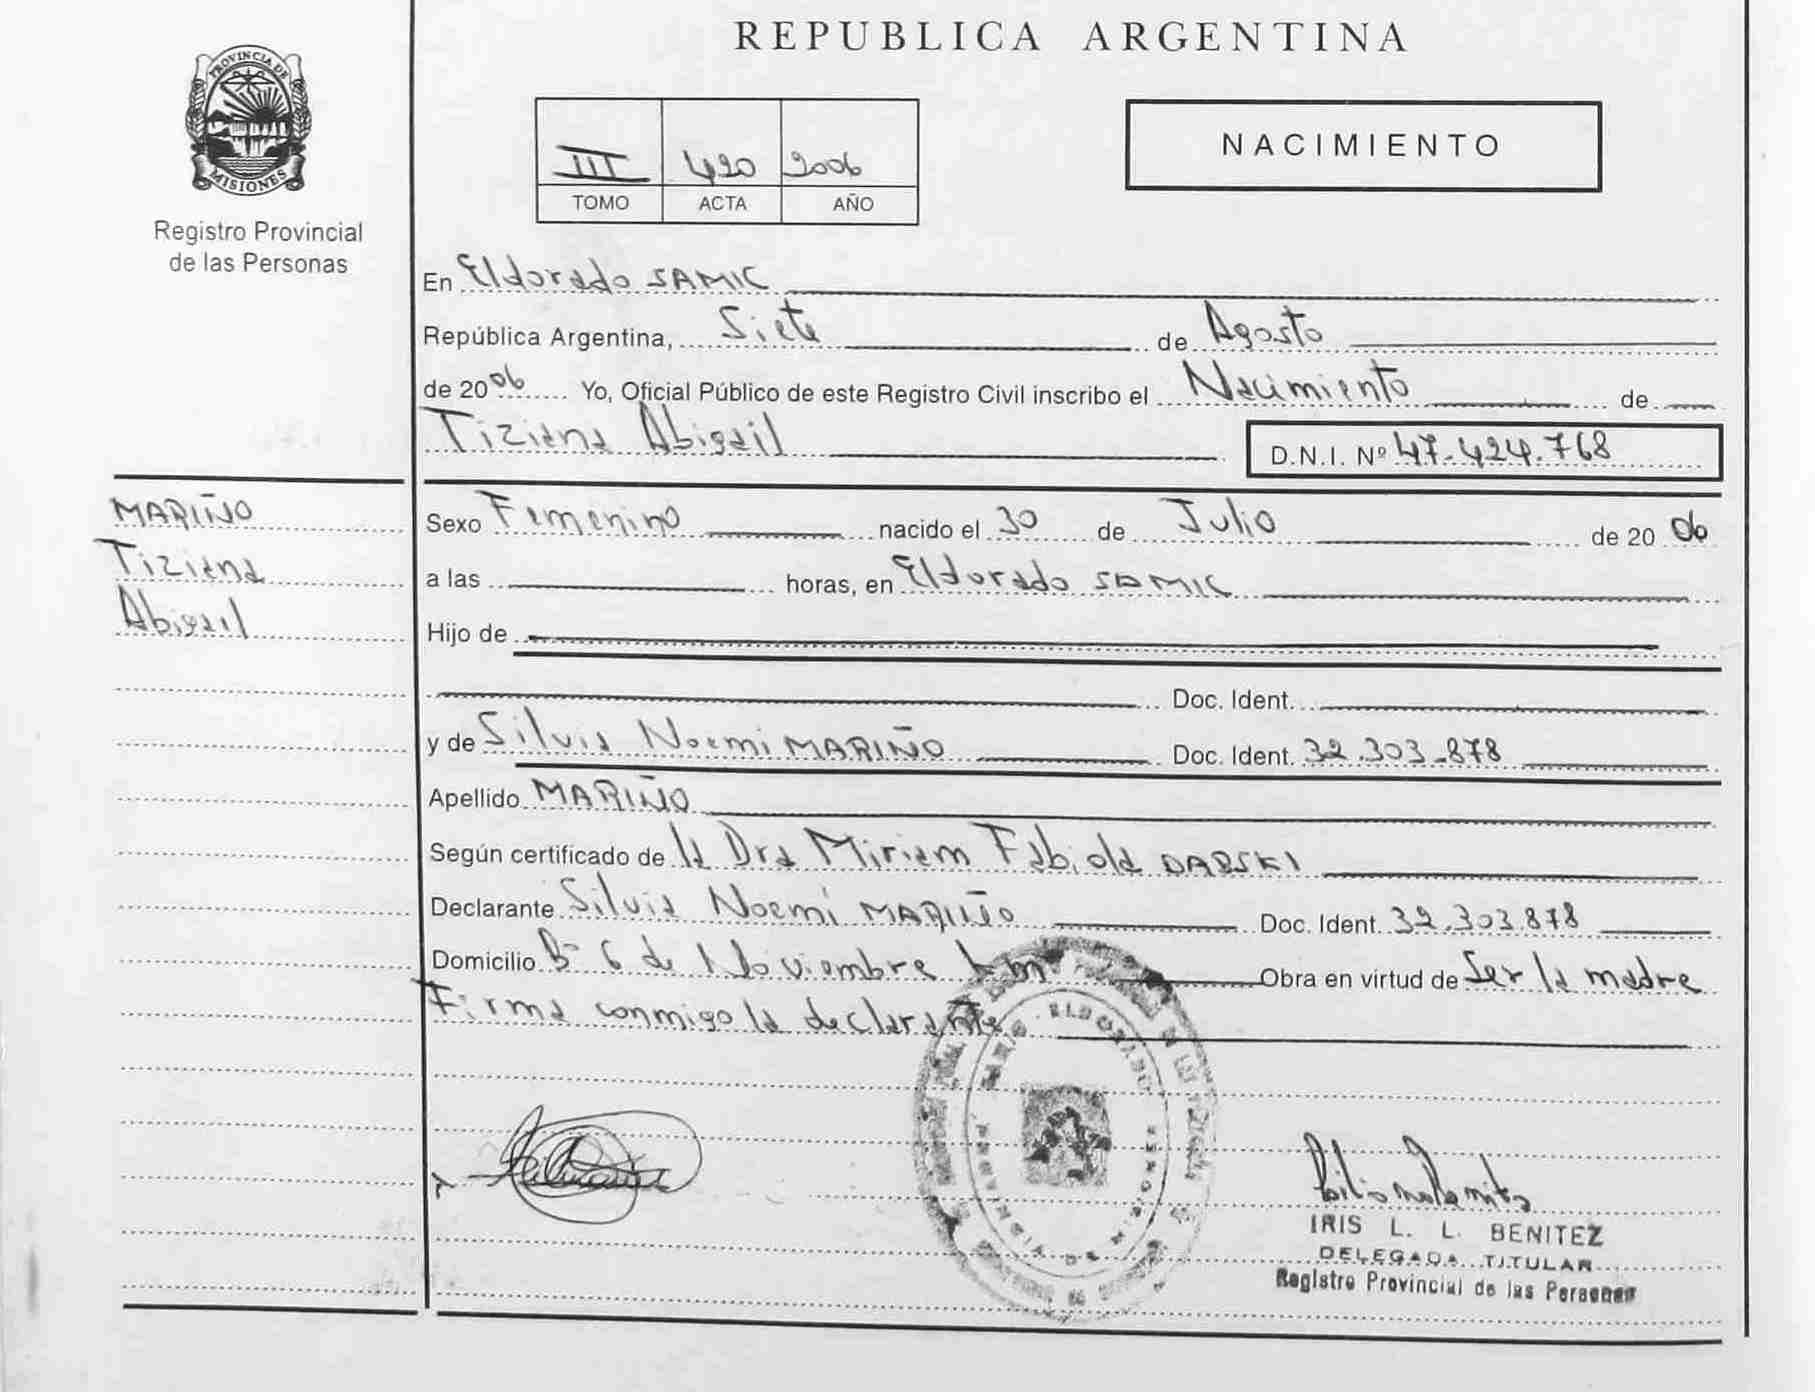 REPUBLICA ARGENTINA
PROVINCIA DE
MISIONES
Registro Provincial
de las Personas
NACIMIENTO
III 420 2006
TOMO ACTA AÑO
En Eldorado SAMIC
República Argentina, Siete de Agosto
de 2006 Yo, Oficial Público de este Registro Civil inscribo el Nacimiento de
Tiziana Abigail D.N.I. Nº 47.424.768
MARIÑO
Tiziana
Abigail
Sexo Femenino nacido el 30 de Julio de 20 06
a las horas, en Eldorado SAMIC
Hijo de
Doc. Ident.
y de Silvia Noemi MARIÑO Doc. Ident. 32.303.878
Apellido MARIÑO
Según certificado de la Dra Miriam Fabiola DARSKI
Declarante Silvia Noemí MARIÑO Doc. Ident. 32.303.878
Domicilio Bº 6 de Noviembre km Obra en virtud de Ser la madre
Firma conmigo la declarante
ELDORADO
IRIS L. L. BENITEZ
DELEGADA TITULAR
Registro Provincial de las Personas